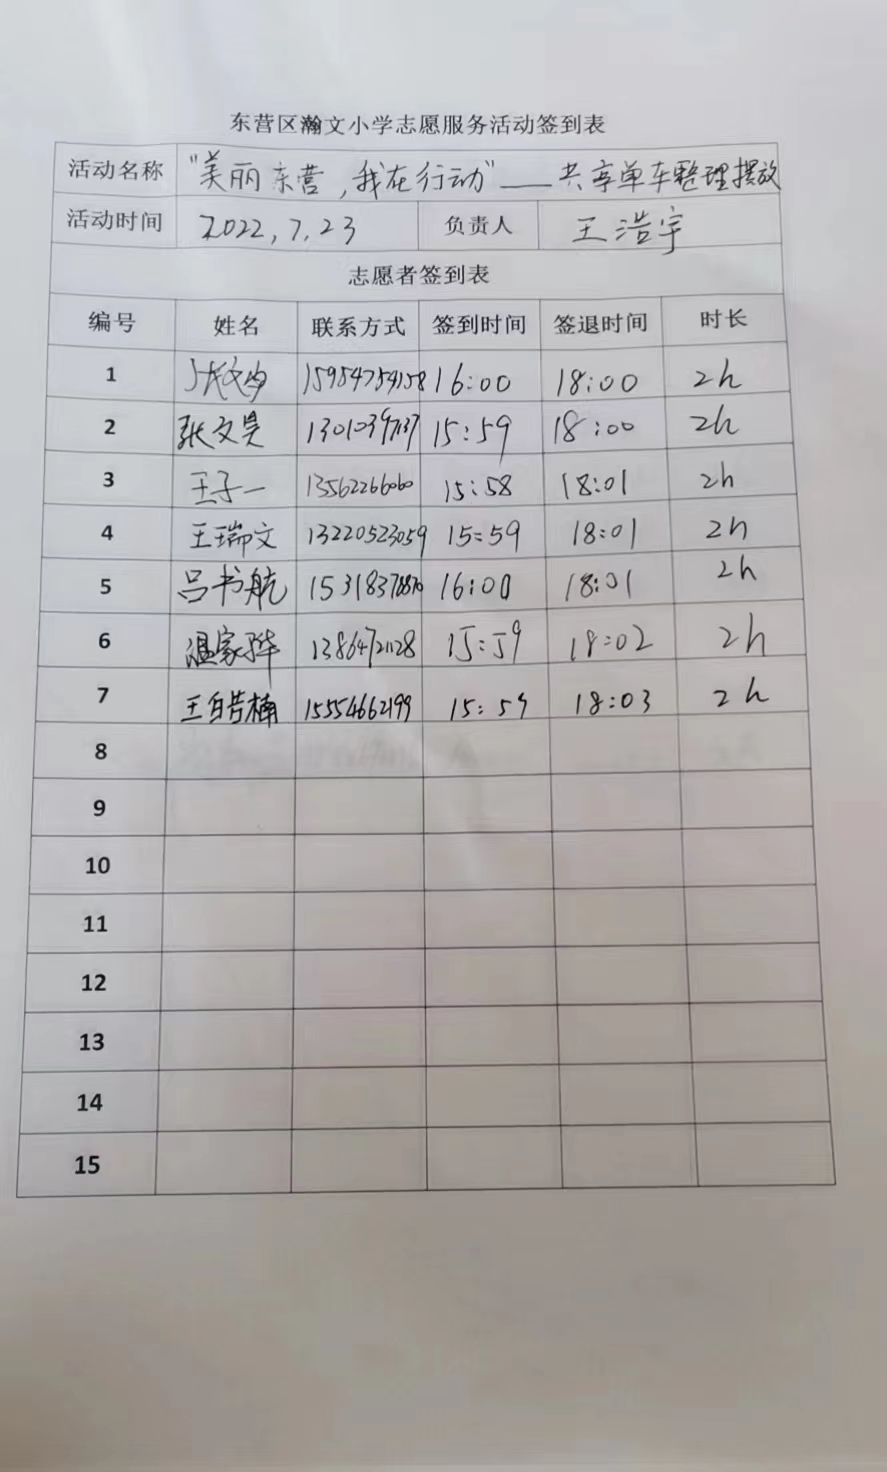 东营区瀚文小学志愿服务活动签到表
活动名称 "美丽东营，我在行动"——共享单车整理摆放
活动时间 2022,7,23 负责人 王浩宇
志愿者签到表
编号 姓名 联系方式 签到时间 签退时间 时长
1 15954754158 16:00 18:00 2h
2 张文昊 15:59 18:00 2h
3 王子一 13562266060 15:58 18:01 2h
4 王瑞文 13220523059 15:59 18:01 2h
5 吕书航 16:00 18:01 2h
6 温家骅 15:59 18:02 2h
7 15554662199 15:59 18:03 2h
8
9
10
11
12
13
14
15